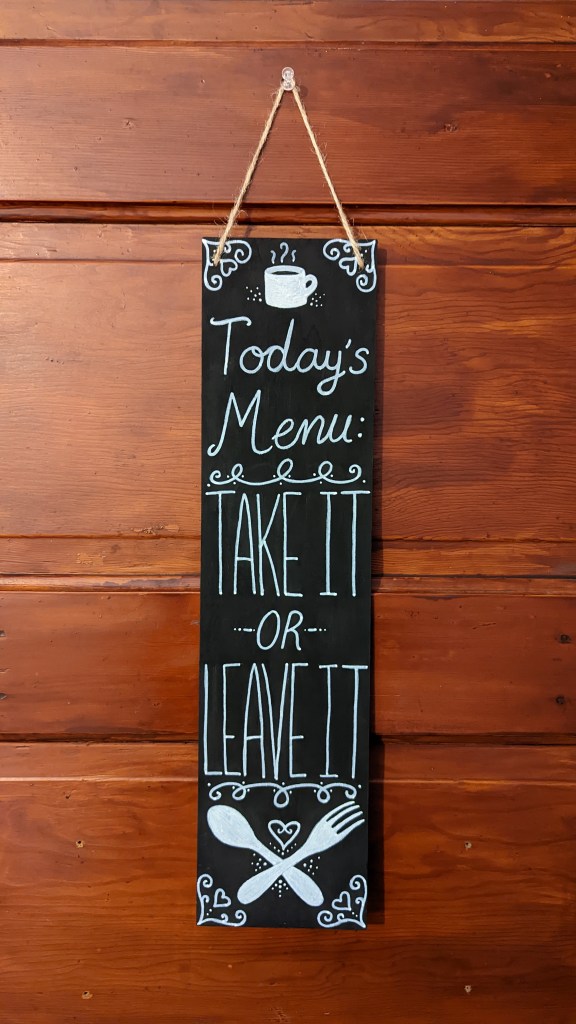 Today's
Menu:
TAKE IT
-OR-
LEAVE IT